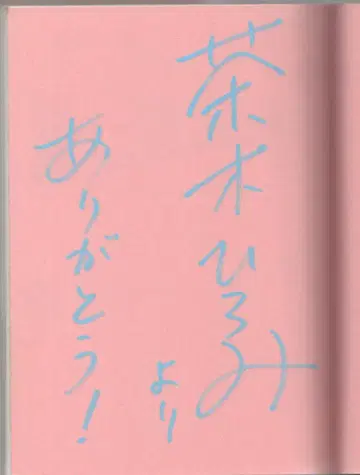 茶木ひろみ
より
ありがとう!